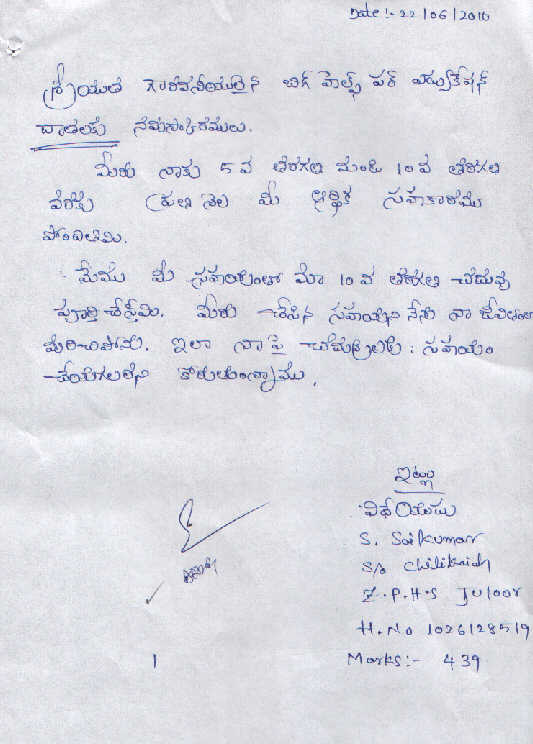 Date :- 22/06/2010
శ్రీయుత గౌరవనీయులైన బిగ్ హెల్ప్ ఫర్ ఎడ్యుకేషన్
నమస్కారములు.
మీరు నాకు 5 వ తరగతి నుండి 10 వ తరగతి
వరకు ప్రతి నెల మీ ఆర్థిక సహకారము
పొందితిమి.
మేము మీ సహాయంతో మా 10 వ తరగతి చదువు
పూర్తి చేస్తిమి. మీరు చేసిన సహాయాన్ని నేను నా జీవితంలో
మరిచిపోను. ఇలా నా పై సహాయం
చేయగలరని కోరుతున్నాము.
ఇట్లు
విధేయుడు
S. Saikumar
S/o Chilikaiah
Z.P.H.S Juloor
H.No 1026128519
Marks:- 439
1